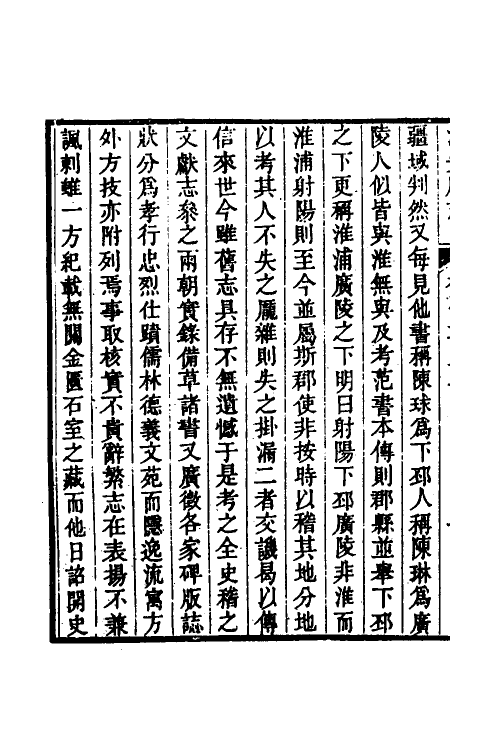 疆域判然又每見他書稱陳球爲下邳人稱陳琳爲廣
陵人似皆與淮無與及考范書本傳則郡縣並舉下邳
之下更稱淮浦廣陵之下明日射陽下邳廣陵非淮而
淮浦射陽則至今並屬斯郡使非按時以稽其地分地
以考其人不失之厖雜則失之掛漏二者交譏曷以傳
信來世今雖舊志具存不無遺憾于是考之全史稽之
文獻志參之兩朝實錄備草諸書又廣徵各家碑版誌
狀分爲孝行忠烈仕蹟儒林德義文苑而隱逸流寓方
外方技亦附列焉事取核實不貴辭繁志在表揚不兼
諷刺雖一方紀載無關金匱石室之藏而他日詔開史